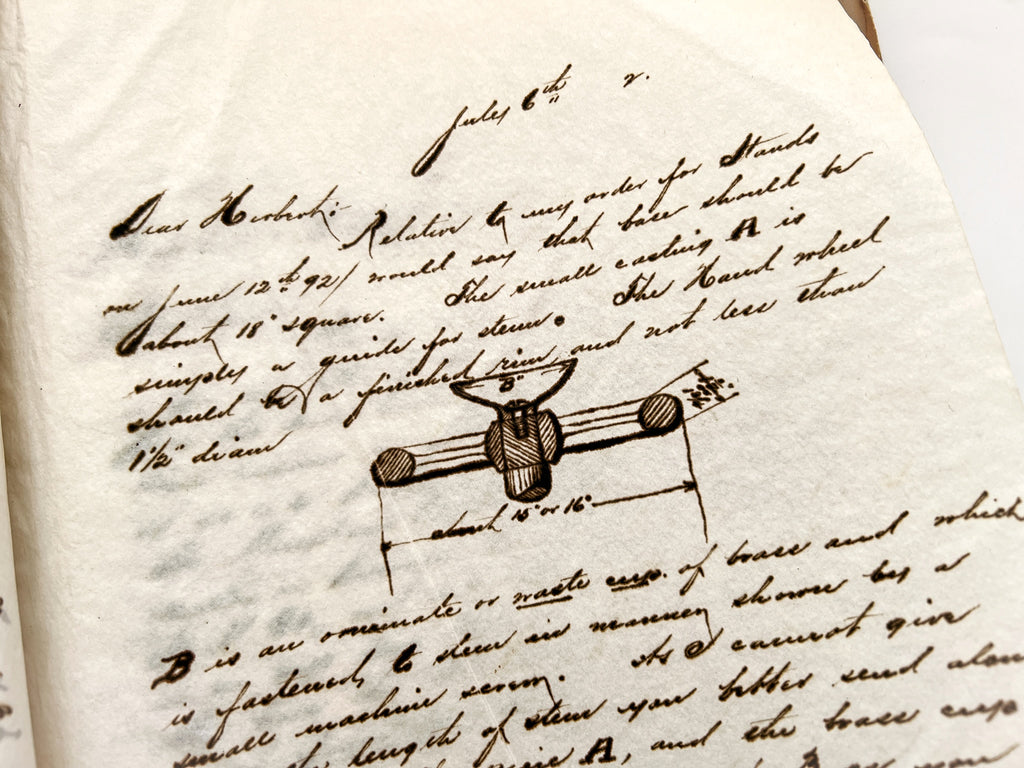 July 6th 2.
Dear Herbert:
Relative to my order for Stands
on June 12th 92/ would say that base should be
about 18" square. The small casting A is
simply a guide for stem. The Hand wheel
should be a finished rim and not less than
1 1/2" diam
8"
about 15" or 16"
B is an ominate or waste cup of brass and which
is fastened to stem in manner shown by a
small machine screw. As I cannot give
length of stem you better send along
A, and the brass cup